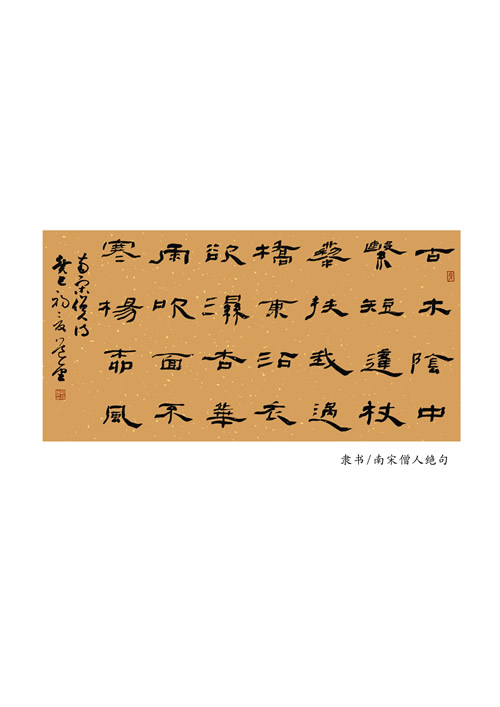 古木陰中
繫短篷杖
藜扶我過
橋東沾衣
欲濕杏華
雨吹面不
寒楊柳風
南宋僧人诗
癸巳初夏
隶书/南宋僧人绝句